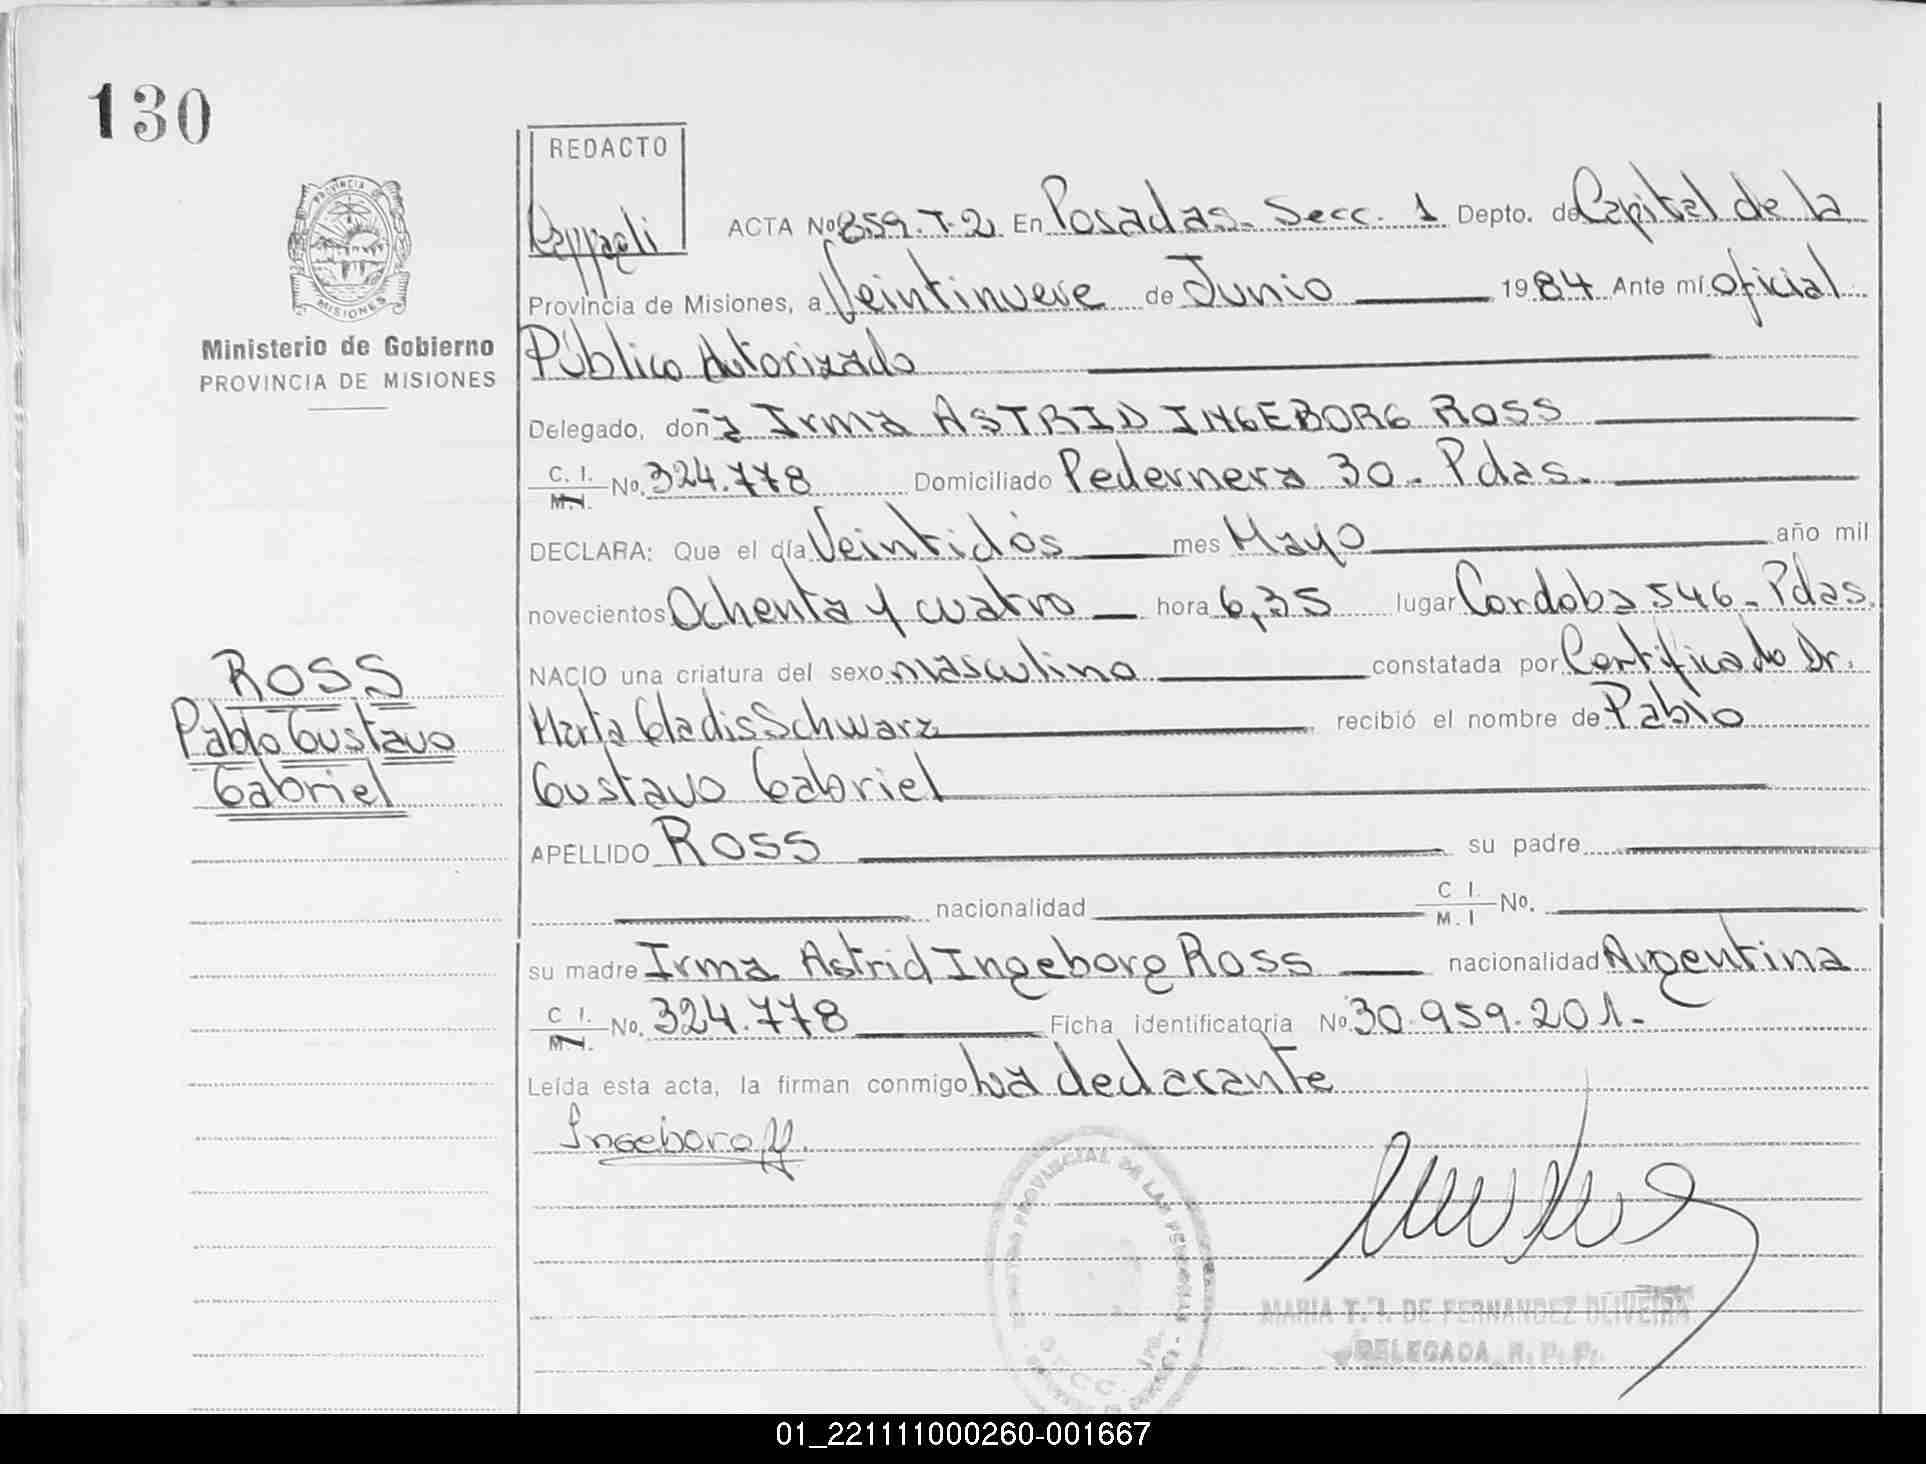 130
REDACTO
PROVINCIA DE
MISIONES
Ministerio de Gobierno
PROVINCIA DE MISIONES
ACTA No 859.T-2 En Posadas- Secc. 1 Depto. de Capital de la
Provincia de Misiones, a Veintinueve de Junio 1984 Ante mí oficial
Público Autorizado
Delegado, don ̃a Irma ASTRID INGEBORG ROSS
C. I. M.I. No. 324.778 Domiciliado Pedernera 30- Pdas.
DECLARA: Que el día Veintidós mes Mayo año mil
novecientos Ochenta y cuatro hora 6,35 lugar Cordoba 546- Pdas.
NACIO una criatura del sexo masculino constatada por Certificado Dr.
Marta Gladis Schwarz recibió el nombre de Pablo
Gustavo Gabriel
APELLIDO ROSS su padre
nacionalidad C I. M. I No.
su madre Irma Astrid Ingeborg Ross nacionalidad Argentina
C I. M.I. No. 324.778 Ficha identificatoria No 30.959.201-
Leída esta acta, la firman conmigo La declarante
ROSS
Pablo Gustavo
Gabriel
PROVINCIAL DE LAS PERSONAS
MARIA T. I. DE FERNANDEZ OLIVEIRA
DELEGADA R. P. P.
01_221111000260-001667